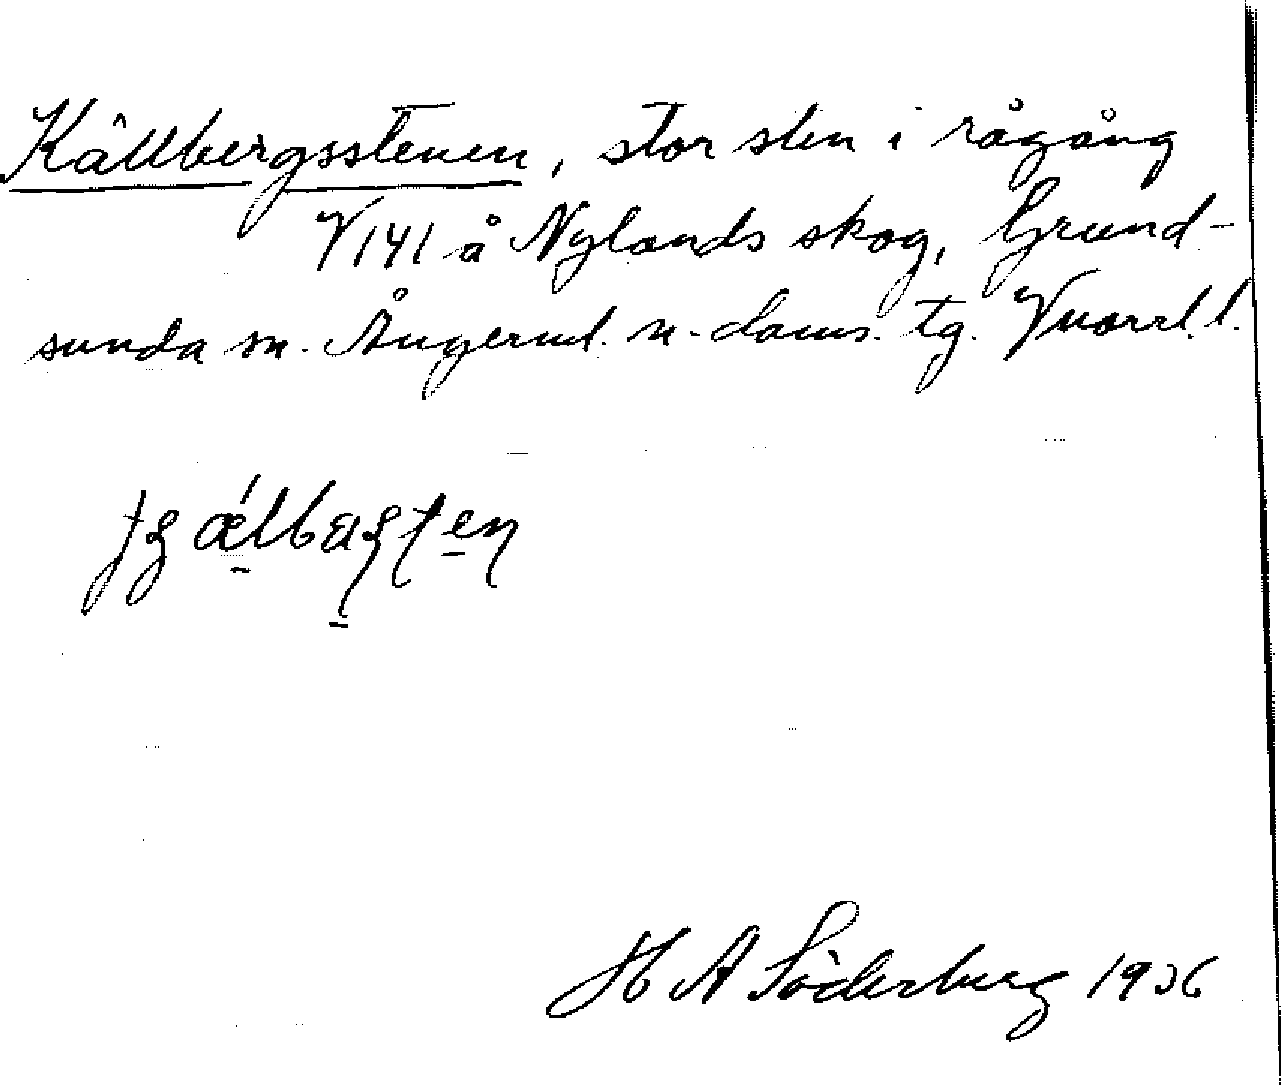 Källbergsstenen, stor sten i rågång
V 141 å Nylands skog, Grund-
sunda sn. Ångerml. n. doms. tg. Vnorrl. l.
H A Söderberg 1936